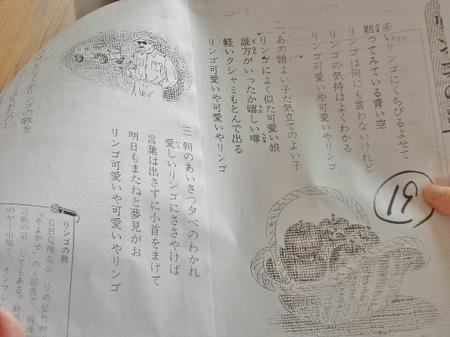 リンゴの唄
一 赤いリンゴにくちびるよせて
黙ってみている青い空
リンゴは何にも言わないけれど
リンゴの気持はよくわかる
リンゴ可愛いや可愛いやリンゴ
二、あの娘よい子だ気立てのよい子
リンゴによく似た可愛い娘
誰方がいったか嬉しい噂
軽いクシャミもとんで出る
リンゴ可愛いや可愛いやリンゴ
三 朝のあいさつ夕べのわかれ
愛しいリンゴにささやけば
言葉は出さずに小首をまげて
明日もまたねと夢見がお
リンゴ可愛いや可愛いやリンゴ
リンゴの歌
の歌を
19